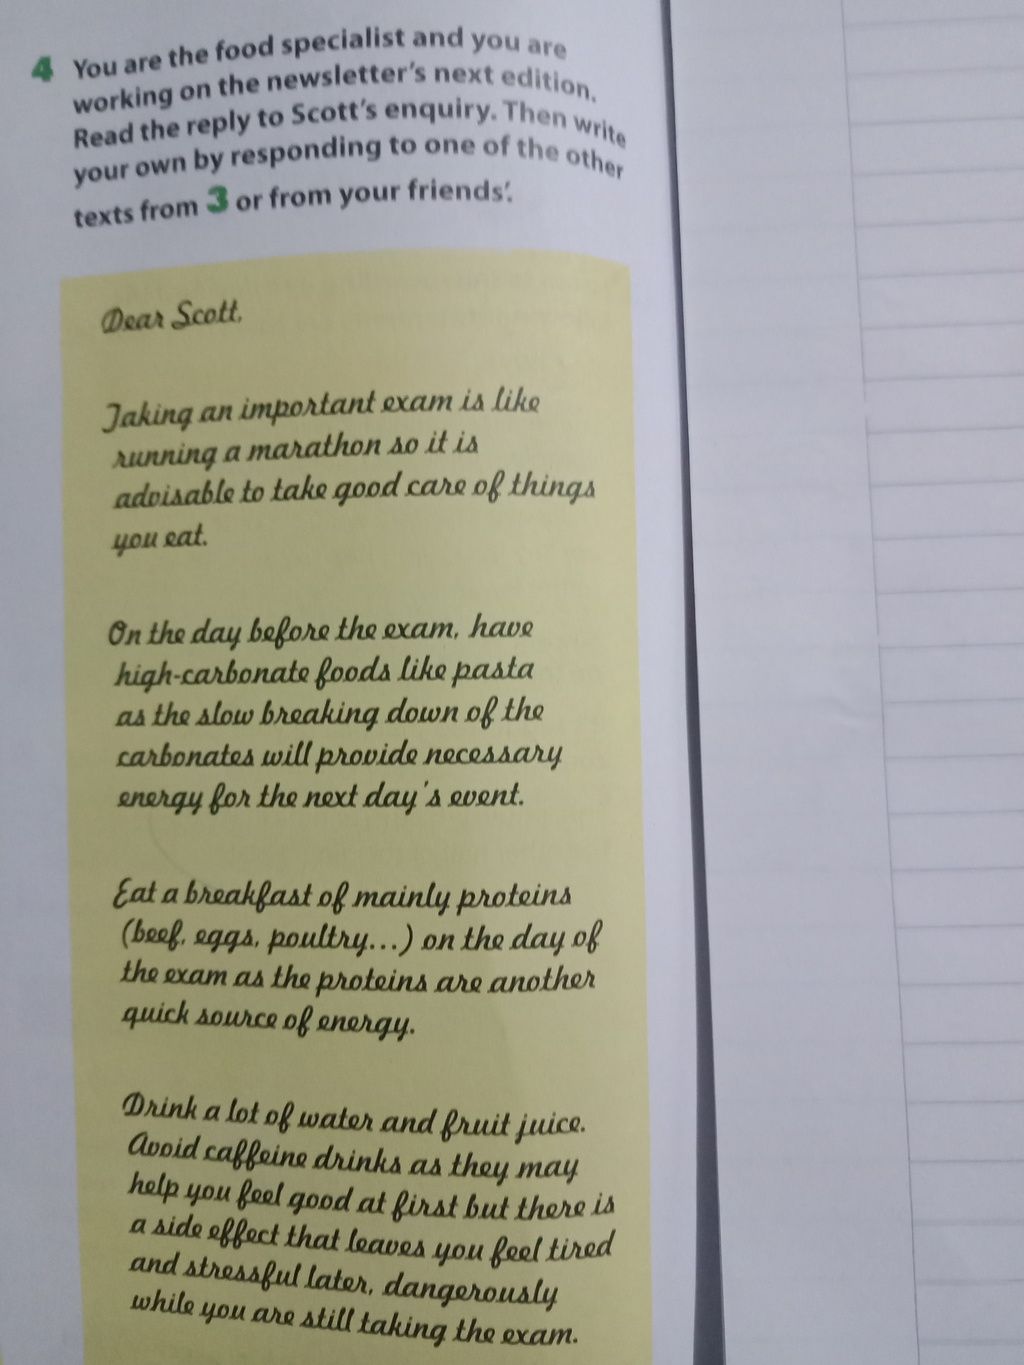 4 You are the food specialist and you are
working on the newsletter's next edition.
Read the reply to Scott's enquiry. Then write
your own by responding to one of the other
texts from 3 or from your friends'.
Dear Scott,
Taking an important exam is like
running a marathon so it is
advisable to take good care of things
you eat.
On the day before the exam, have
high-carbonate foods like pasta
as the slow breaking down of the
carbonates will provide necessary
energy for the next day's event.
Eat a breakfast of mainly proteins
(beef, eggs, poultry...) on the day of
the exam as the proteins are another
quick source of energy.
Drink a lot of water and fruit juice.
Avoid caffeine drinks as they may
help you feel good at first but there is
a side effect that leaves you feel tired
and stressful later, dangerously
while you are still taking the exam.